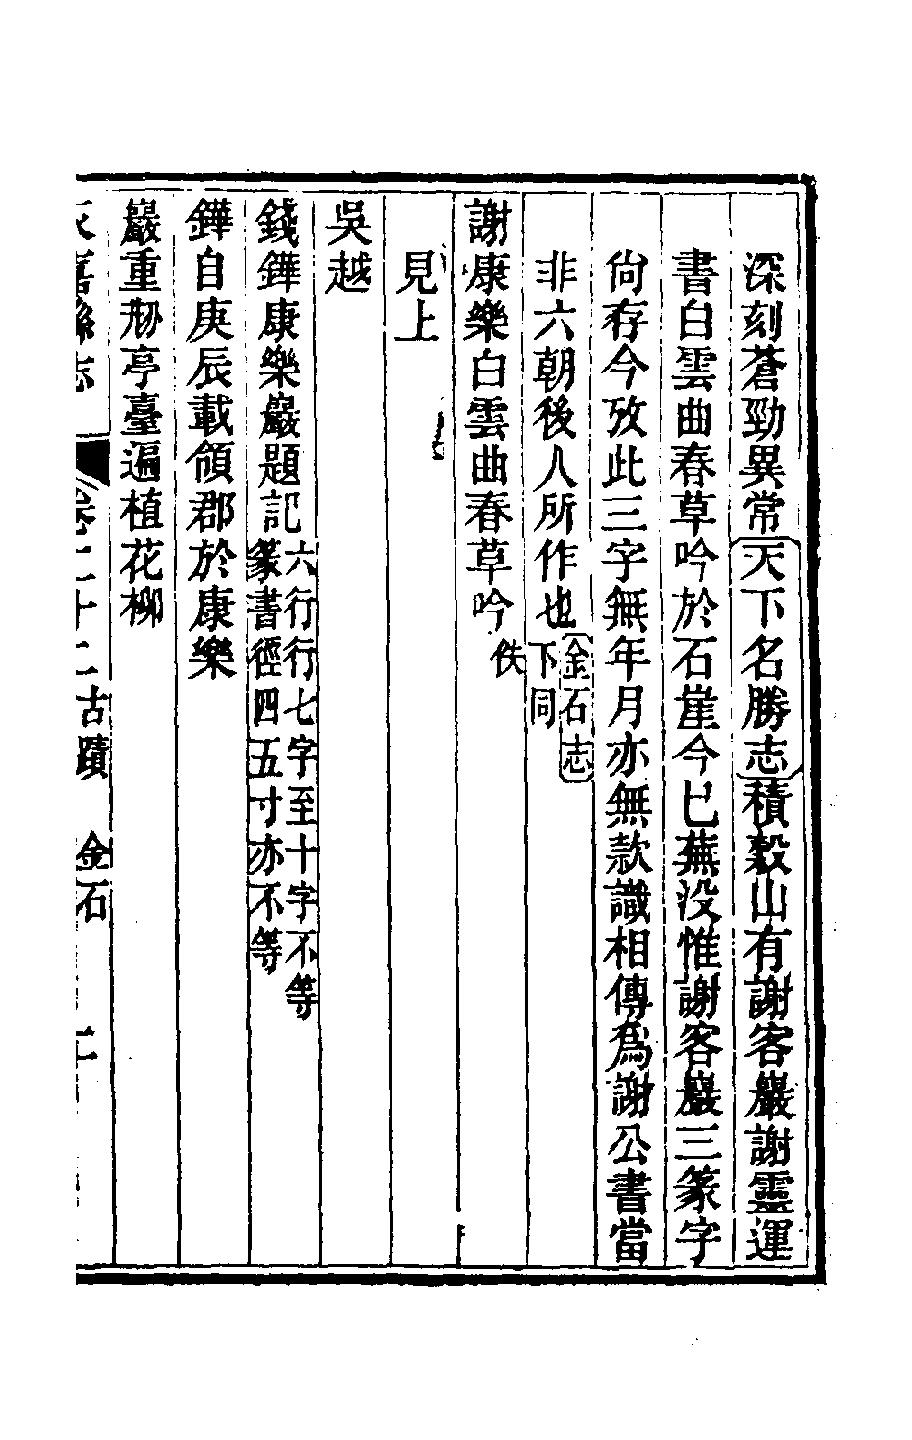 深刻蒼勁異常天下名勝志積穀山有謝客巖謝靈運
書白雲曲春草吟於石崖今已蕪没惟謝客巖三篆字
尙存今攷此三字無年月亦無款識相傳爲謝公書當
非六朝後人所作也金石志下同
謝康樂白雲曲春草吟佚
見上
吳越
錢鏵康樂巖題記六行行七字至十字不等篆書徑四五寸亦不等
鏵自庚辰載領郡於康樂
巖重刱亭臺遍植花柳
嘉縣志 卷二十二古蹟 金石 二